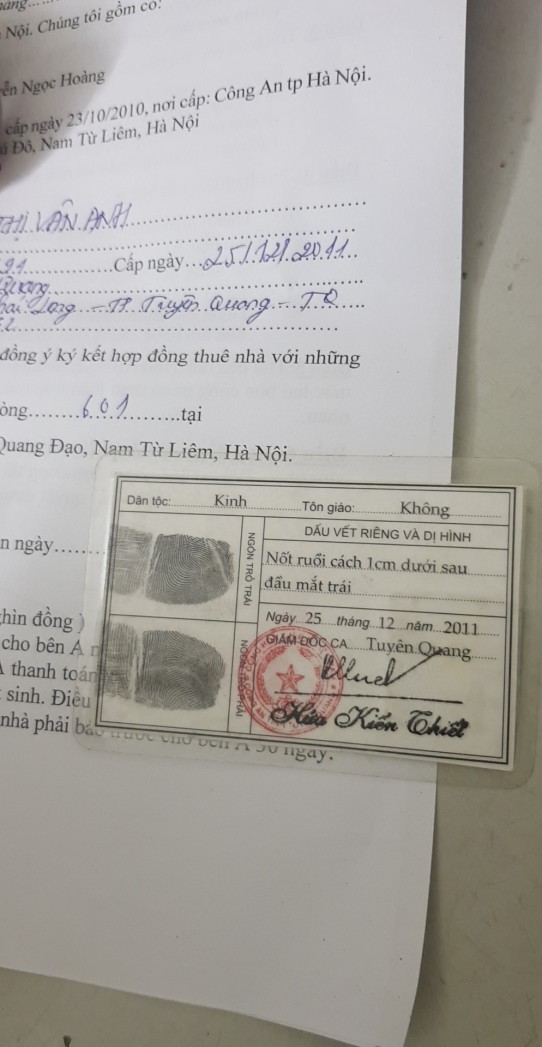 Nội. Chúng tôi gồm có:
Ngọc Hoàng
cấp ngày 23/10/2010, nơi cấp: Công An tp Hà Nội.
Đô, Nam Từ Liêm, Hà Nội
THỊ VÂN ANH
91 Cấp ngày 25/12/2011
Quang
Long – TP Tuyên Quang – TQ
đồng ý ký kết hợp đồng thuê nhà với những
601 tại
Quang Đạo, Nam Từ Liêm, Hà Nội.
n ngày
hìn đồng )
cho bên A
thanh toán
sinh. Điều
nhà phải
ngày.
Dân tộc: Kinh Tôn giáo: Không
NGÓN TRỎ TRÁI
DẤU VẾT RIÊNG VÀ DỊ HÌNH
Nốt ruồi cách 1cm dưới sau
đầu mắt trái
Ngày 25 tháng 12 năm 2011
GIÁM ĐỐC CA Tuyên Quang
Hứa Kiến Thiết